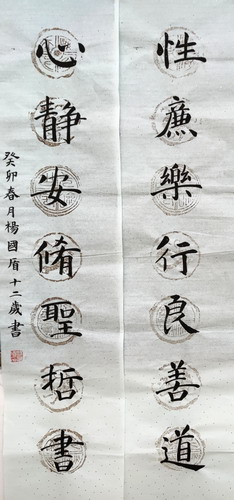 性廉樂行良善道
心靜安脩聖哲書
癸卯春月楊國盾十二歲書